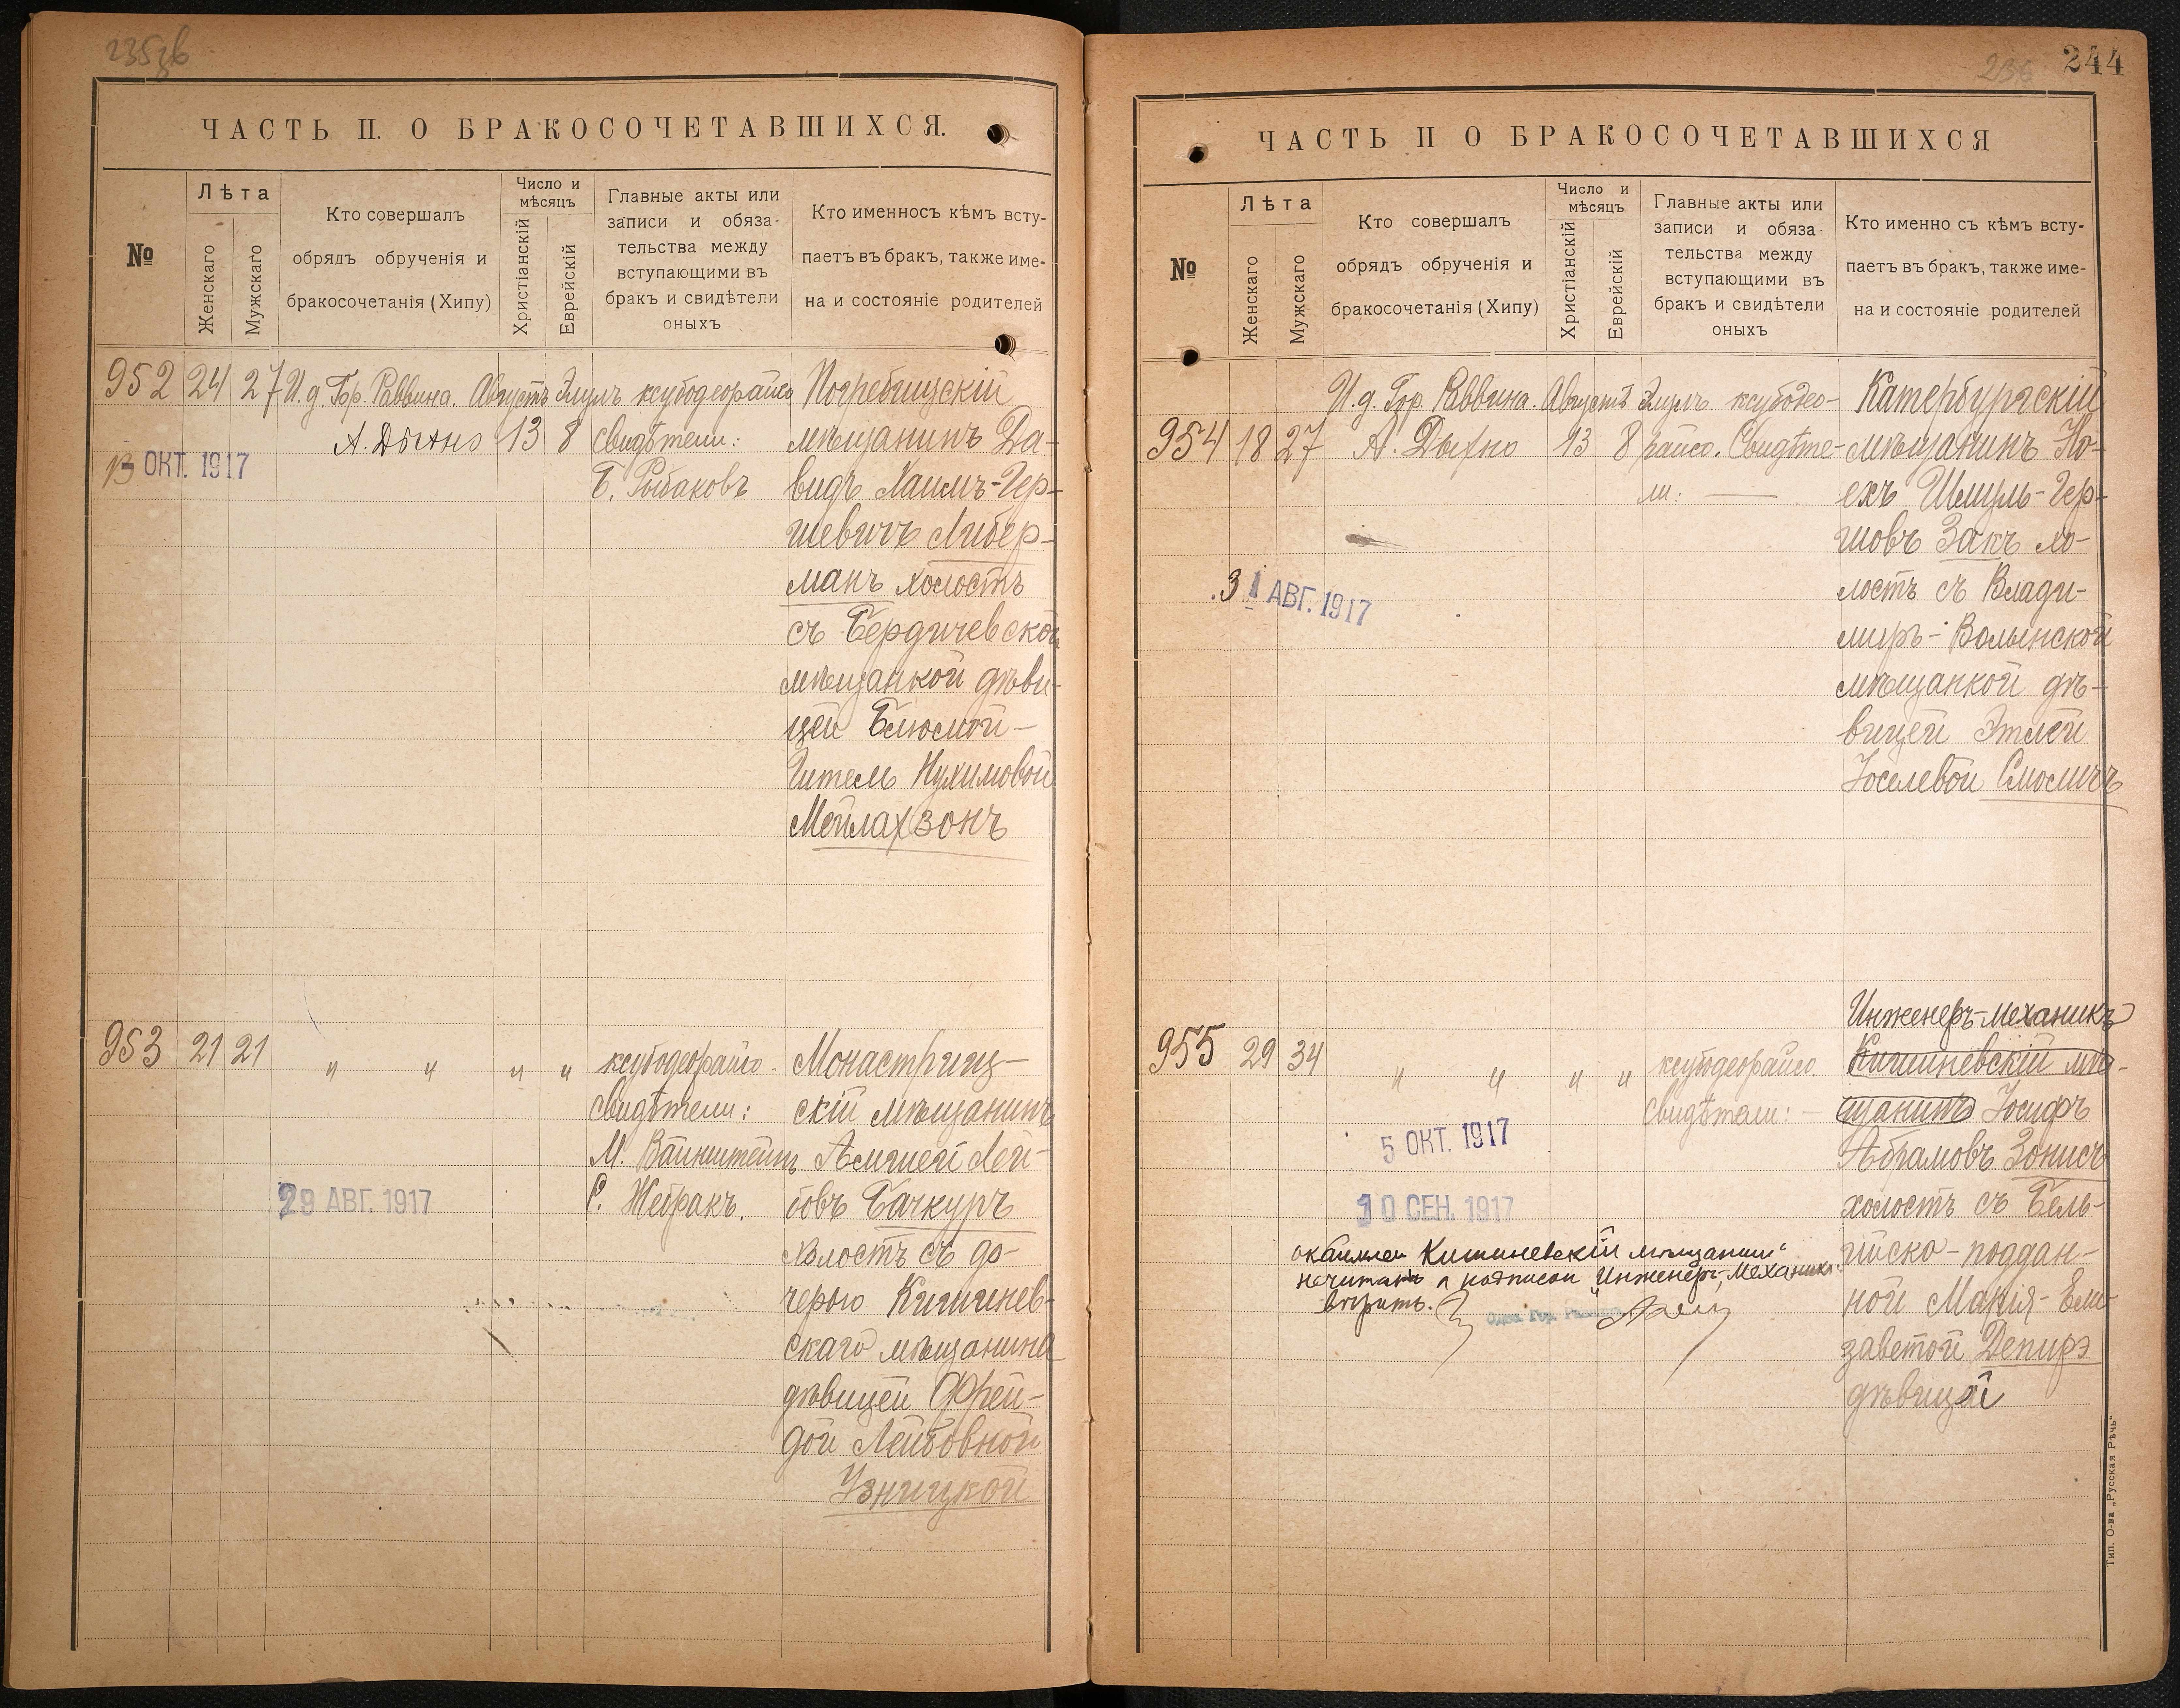 244
ЧАСТЬ II. О БРАКОСОЧЕТАВШИХСЯ.
№
Лѣта
Женскаго
Мужскаго
Кто совершалъ
обрядъ обрученія и
бракосочетанія (Хипу)
Число и
мѣсяцъ
Христіанскій
Еврейскій
Главные акты или
записи и обяза-
тельства между
вступающими въ
бракъ и свидѣтели
оныхъ
Кто именносъ кѣмъ всту-
паетъ въ бракъ, также име-
на и состояніе родителей
952 24 27 И. д. Гор. Раввина. Августъ Элулъ ксубодеорайсо
А. Дыхно 13 8 свидѣтели:
Б. Рыбаковъ
13 ОКТ. 1917
Погребищскій
мѣщанинъ Да-
видъ Хаимъ-Гер-
шевичъ Либер-
манъ холостъ
съ Бердичевской
мѣщанкой дѣви-
цей Блюмой-
Гитель Нухимовой
Мейлахзонъ
953 21 21 " " " " ксубодеорайсо.
свидѣтели:
М. Вайнштейнъ
С. Жебракъ.
29 АВГ. 1917
Монастрищ-
скій мѣщанинъ
Лей-
бовъ Бачкуръ
холостъ съ до-
черью Кишинев-
скаго мѣщанина
дѣвицей Фрей-
дой Лейбовной
Узницкой
ЧАСТЬ II О БРАКОСОЧЕТАВШИХСЯ
№
Лѣта
Женскаго
Мужскаго
Кто совершалъ
обрядъ обрученія и
бракосочетанія (Хипу)
Число и
мѣсяцъ
Христіанскій
Еврейскій
Главные акты или
записи и обяза-
тельства между
вступающими въ
бракъ и свидѣтели
оныхъ
Кто именно съ кѣмъ всту-
паетъ въ бракъ, также име-
на и состояніе родителей
И. д. Гор. Раввина. Августъ Элулъ ксубодео-
954 18 27 А. Дыхно 13 8 райсо. Свидѣте-
ли: —
31 АВГ. 1917
Катербургскій
мѣщанинъ
Шмуль-Гер-
шовъ Закъ хо-
лостъ съ Влади-
миръ-Волынской
мѣщанкой дѣ-
вицей Этлей
Іоселевой
Инженеръ-Механикъ
955 29 34 " " " " ксубодеорайсо.
свидѣтели: —
5 ОКТ. 1917
10 СЕН. 1917
Кишиневскій мѣ-
щанинъ Іосифъ
Абрамовъ Зонисъ
холостъ съ Бель-
гійско-поддан-
ной Марія-Ели-
заветой Депирэ
дѣвицей
Кишиневскій мѣщанинъ"
не читать а надписан "Инженеръ-Механикъ"
вѣрить.
Тип. О-ва „Русская Рѣчь"